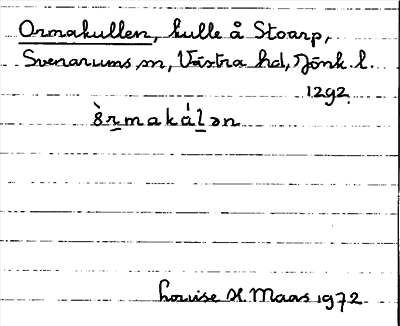 Ormakullen, kulle å Stoarp,
Svenarums sn, Västra hd, Jönk. l.
1292.
òrmakálən
Louise H Maas 1972